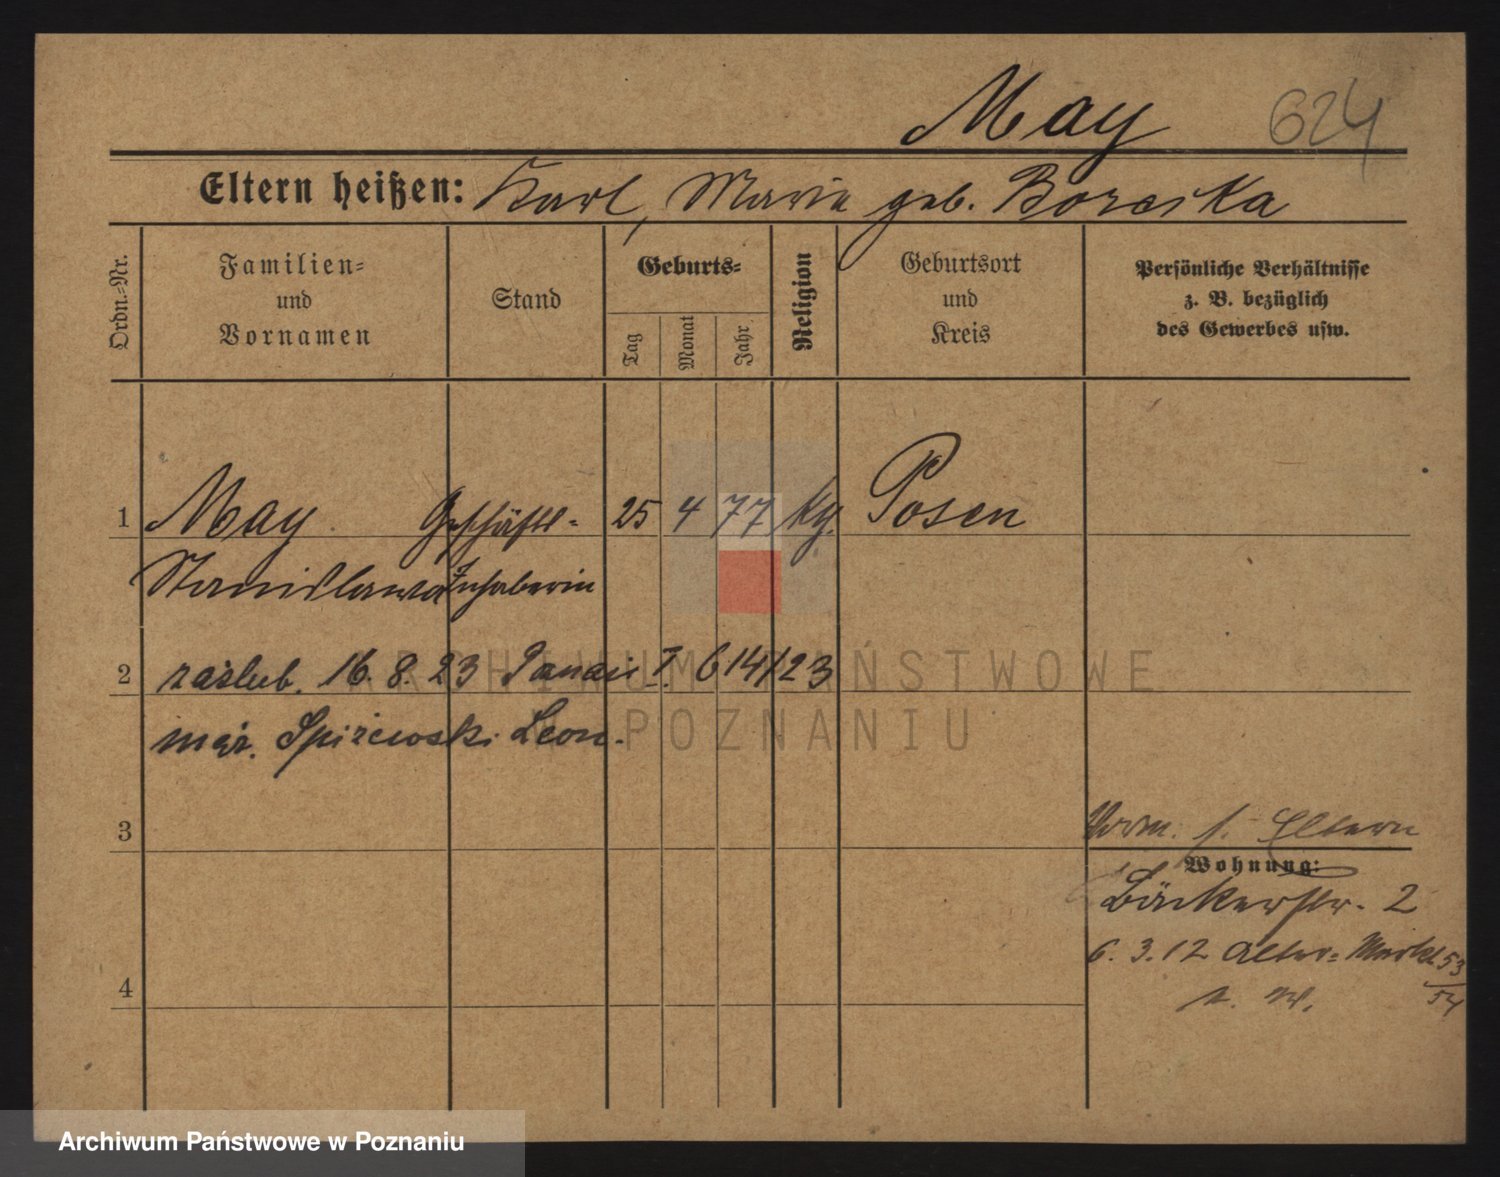 May 624
Eltern heißen: Karl, Marie geb. Borcska
Ordn.=Nr.
Familien=
und
Vornamen
Stand
Geburts=
Tag
Monat
Jahr
Religion
Geburtsort
und
Kreis
Persönliche Verhältnisse
z. B. bezüglich
des Gewerbes usw.
1 May Geschäfts- 25 4 77 kg. Posen
Stanislawa Inhaberin
2 zaślub. 16. 8. 23 Poznań I. 614/23
mąż. Spiżewski Leon.
3
Verm. s. Eltern
Wohnung:
Bäckerstr. 2
6. 3. 12 Alter=Markt 53/54
4
ARCHIWUM PAŃSTWOWE
W POZNANIU
Archiwum Państwowe w Poznaniu